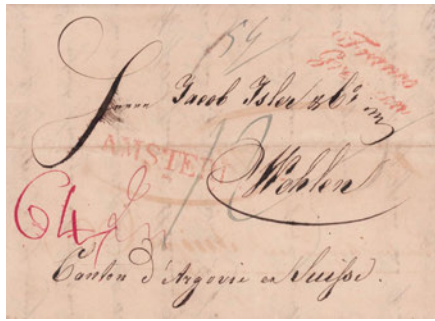 54
Franco
Herren Jacob Isler & Co. in
AMSTERD
Wohlen
64
Canton d'Argovie en Suisse.